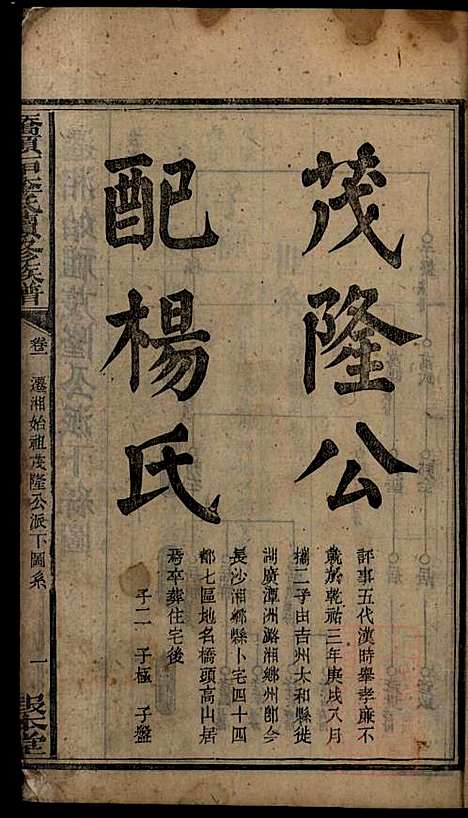 茂隆公
評事五代漢時舉孝廉不
就於乾祐三年庚戌八月
攜二子由吉州太和縣徙
湖廣潭洲潞湘鄉州即今
長沙湘鄉縣卜宅四十四
都七區地名橋頭高山居
焉卒葬住宅後
子二 子極 子盤
配楊氏
橋頭 氏續修族譜
卷二
遷湘始祖茂隆公派下圖系
一
報本堂